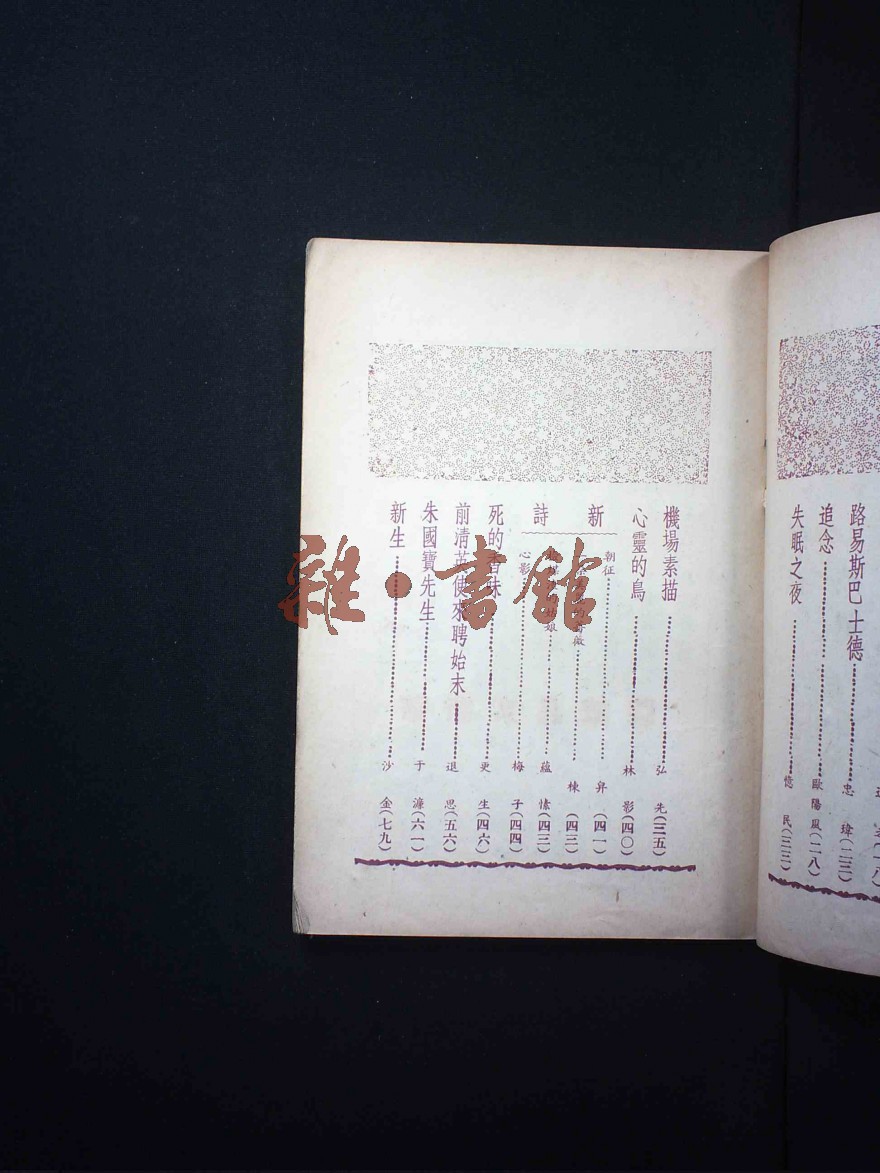 路易斯巴士德……忠瑋(二三)
追念……歐陽風(二八)
失眠之夜……憶民(三三)
機場素描……弘先(三五)
心靈的鳥……林影(四〇)
新詩
朝征……昇(四一)
薔薇……棟(四三)
姑娘……蘊愫(四三)
心影……梅子(四四)
死的香味……更生(四六)
前清英使來聘始末……退思(五六)
朱國寶先生……于濂(六一)
新生……沙金(七九)
雜·書館